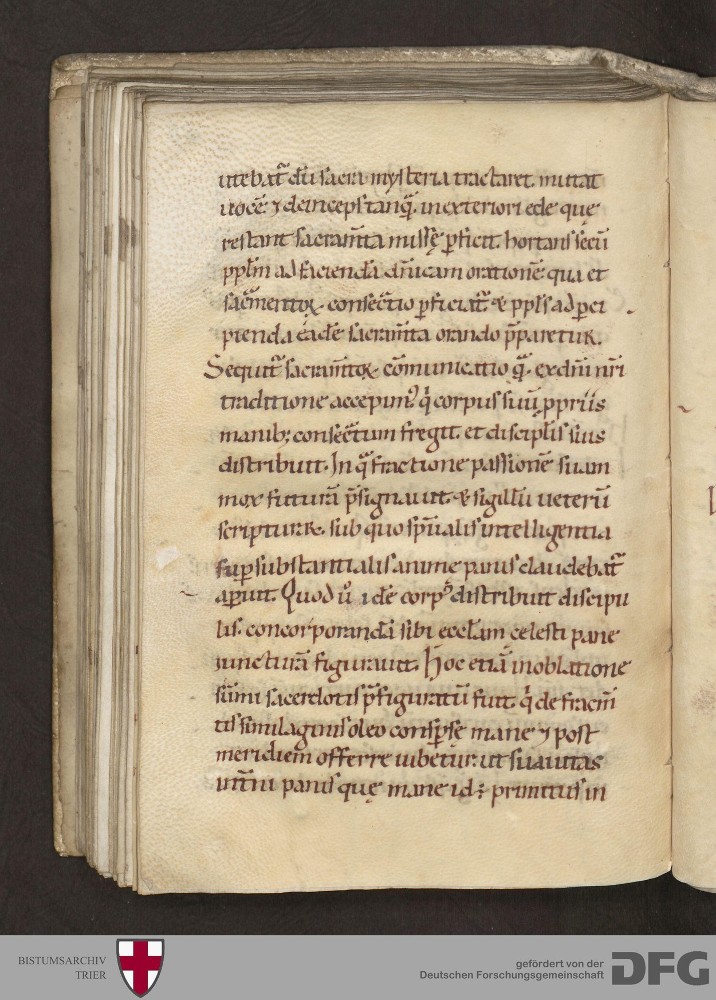 utebat᷑ dū sacra mysteria tractaret. mittat
uocē ⁊ deinceps tanꝗ̄. in exteriori ede que
restant sacram̄ta missę ꝑficit. hortans secū
ppl̄m ad faciendā dn̄icam orationē. qua et
consec̄tio ꝑficiat᷑ & ppl̄s ad ꝑci
pienda eadē sacram̄ta orando p̄paretur.
Sequit᷑ sacram̄toꝝ cōmunicatio q̄ ex dn̄i nr̄i
traditione accepimꝰ q̓ corpus suū ꝓpriis
manibꝫ consec̄tum fregit. et discipl̄is suis
distribuit. In q̄ fractione passionē suam
mox futurā p̄signauit. & sigillū ueterū
scripturaꝝ. sub quo sp̄ualis intelligentia
suꝑsubstantialis anime panis claudebat᷑
aꝑuit. Quod u̓ idē corpꝰ distribuit discipu
lis. concorporandā sibi eccl̄am celesti pane
iuncturā figurauit. Hoc etiā in oblatione
sūmi sacerdotis p̄figuratū fuit. q̓ de fracm̄
tis similaginis oleo consꝑse mane ⁊ post
meridiem offerre iubetur. ut suauitas
panis quę mane id ÷ primitus in
BISTUMSARCHIV
TRIER
gefördert von der
Deutschen Forschungsgemeinschaft
DFG